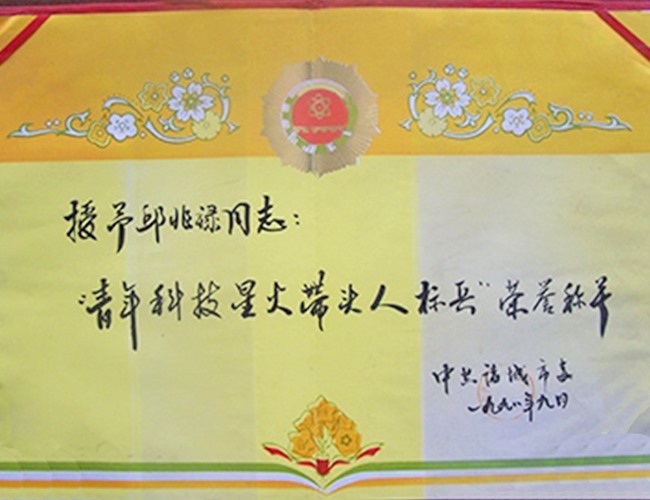 授予邱兆禄同志：
“青年科技星火带头人标兵”荣誉称号
中共诸城市委
一九九八年九月